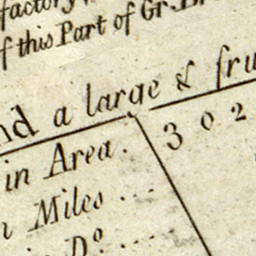 factory
f this Part of Gr. B
nd a large & fru
in Area. 302
n Miles ...
in Do. ....